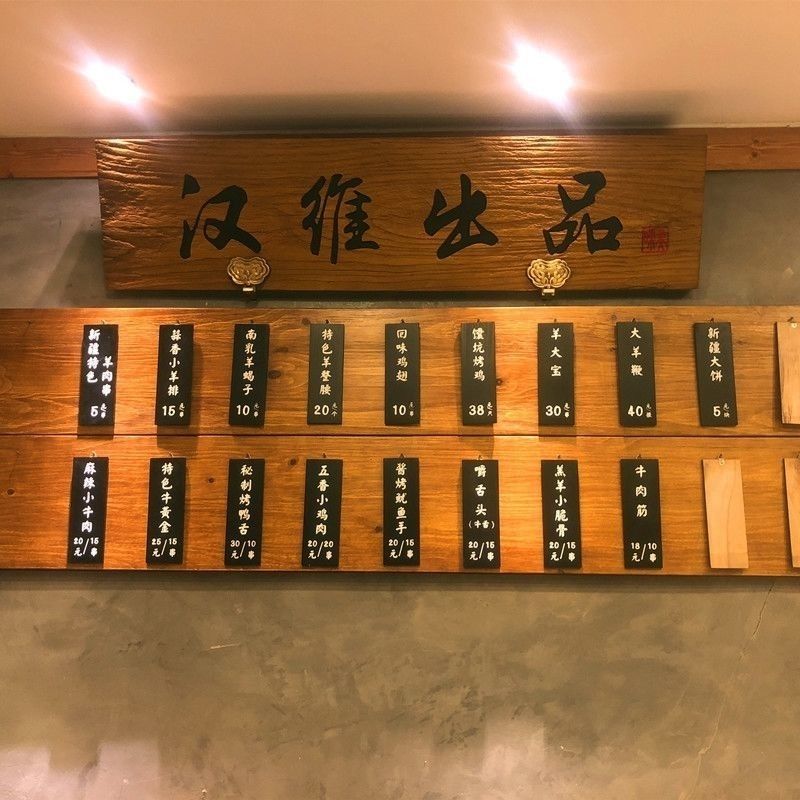 汉维出品
新疆特色羊肉串 5元/串
蒜香小羊排 15元/串
南乳羊蝎子 10元/串
特色羊整腰 20元/个
回味鸡翅 10元/串
馕坑烤鸡 38元/只
羊大宝 30元/串
大羊鞭 40元/根
新疆大饼 5元/块
麻辣小牛肉 20元/15串
特色牛黄金 25元/15串
秘制烤鸭舌 30元/10串
五香小鸡肉 20元/20串
酱烤鱿鱼手 20元/15串
嚼舌头(牛舌) 20元/15串
羔羊小脆骨 20元/15串
牛肉筋 18元/10串